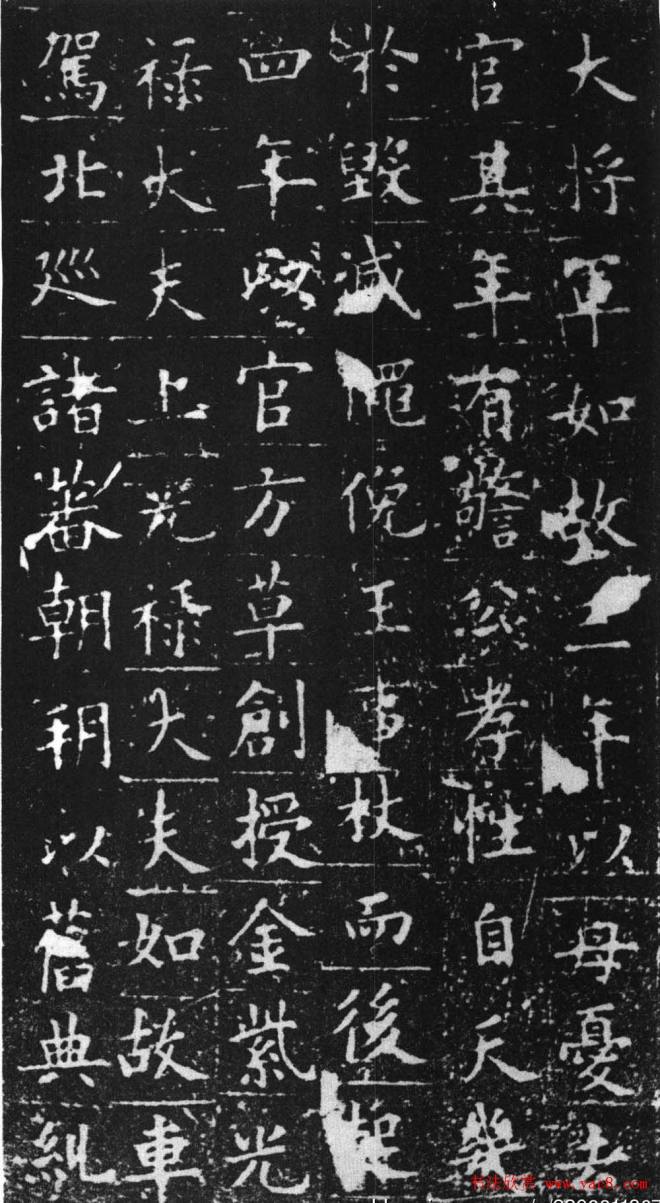 大將軍如故二年以母憂去
官其年有公孝性自天幾
於毀滅俛王事杖而後起
四年官方草創授金紫光
祿大夫上光祿大夫如故車
駕北巡諸蕃朝以舊典糾
书法欣赏 www.yac8.com